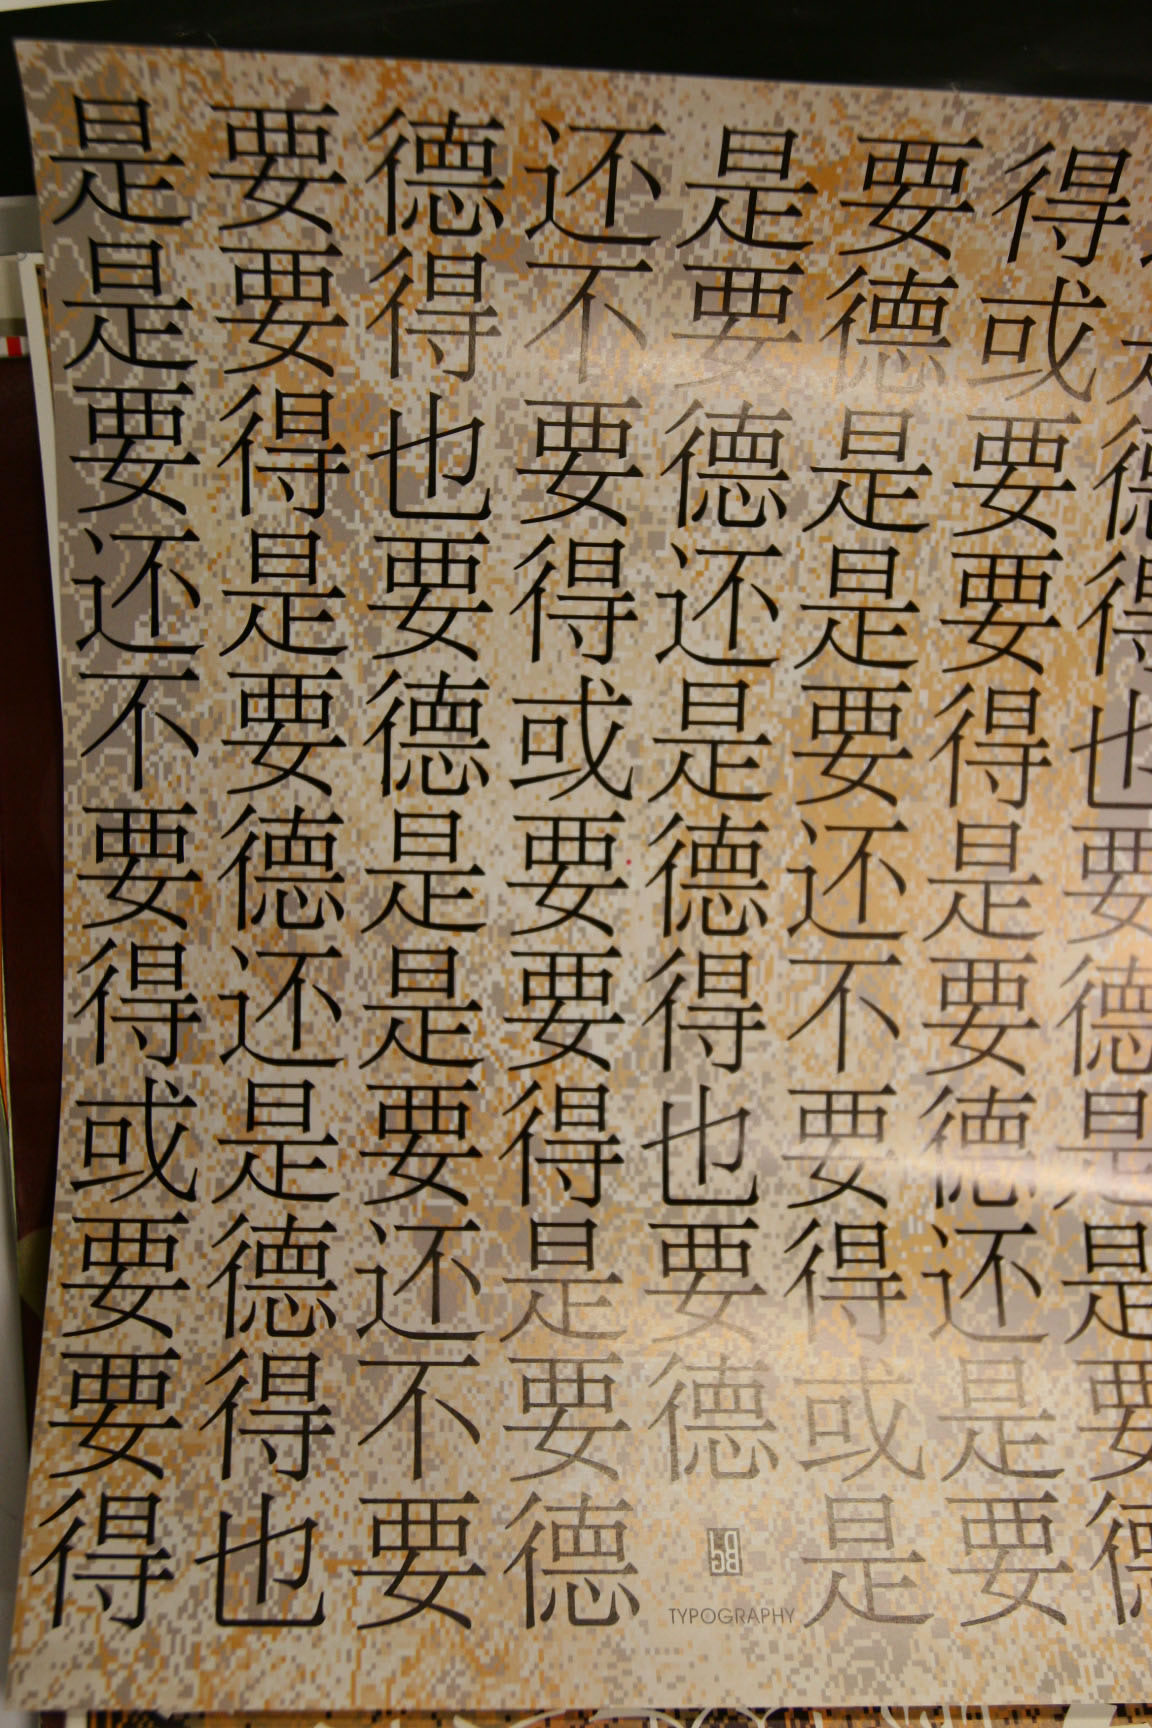 是要德还是要得
是要得不要德或
要得也要德是要德
还是要得还是要得
不要德或是要得也
要德是要德还是要
得还是要得不要德
或是要得也要德是
要德还是要得还是
要得不要德或是要
得也要德 是要德
TYPOGRAPHY